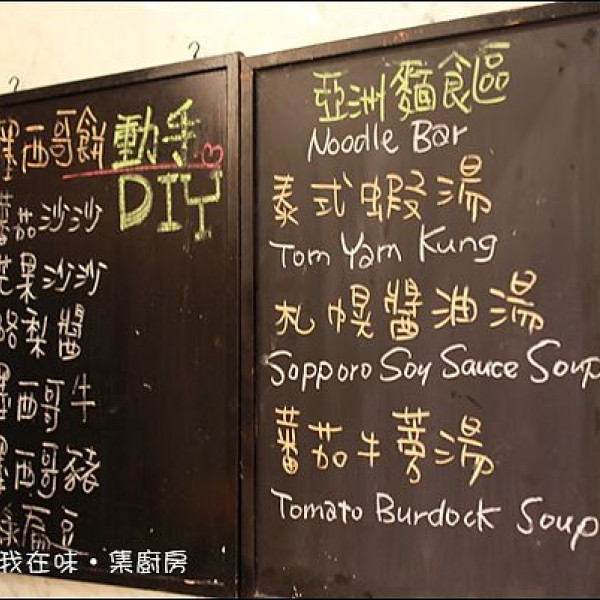 墨西哥餅動手
DIY
蕃茄沙沙
芒果沙沙
酪梨醬
墨西哥牛
墨西哥豬
扁豆
亞洲麵食區
Noodle Bar
泰式蝦湯
Tom Yam Kung
札幌醬油湯
Sopporo Soy Sauce Soup
蕃茄牛蒡湯
Tomato Burdock Soup
我在味・集廚房